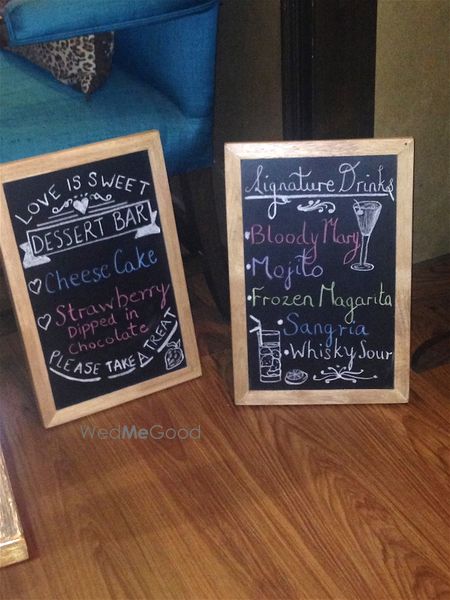 LOVE IS SWEET
DESSERT BAR
Cheese Cake
Strawberry
Dipped in
Chocolate
PLEASE TAKE A TREAT
Signature Drinks
• Bloody Mary
• Mojito
• Frozen Magarita
• Sangria
• Whisky Sour
WedMeGood